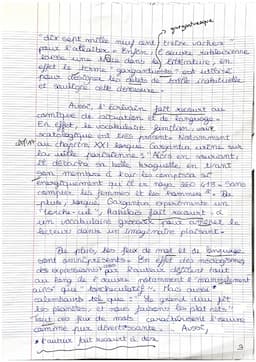 gargantuesque
"dix sept mille neuf cent treize vaches"
pour l'allaiter. Enfin, l'œuvre rabelaisienne
laisse une trace dans la littérature, en
effet le terme "gargantuesque" est utilisé
pour désigner les objets de taille
et souligne cette démesure.
Aussi, l'écrivain fait recourt au
comique de situation et de langage.
En effet, le vocabulaire familier, voire
scatologique est très présent. Notamment
au chapitre XXI lorsque Gargantua urine sur
la ville parisienne : "Alors en souriant,
il détacha sa belle braguette, en tirant
son membre à l'air les compissa si
énergiquement qu'il en noya 260 418. Sans
compter les femmes et les hommes". De
plus, lorsque Gargantua expérimente un
"torche-cul", Rabelais fait recourt à
un vocabulaire grossier pour
lecteur dans un imaginaire plaisant.
De plus, les jeux de mot et de langage
sont omniprésents. En effet des néologismes
des expressions par l'auteur défilent tout
au long de l'œuvre notamment
ainsi que "torcheculatif". Mais aussi
calembours tel que : "Le grand dieu fit
les planètes, et nous faisons les plats nets"
tout ces jeux de mots caractérisent l'œuvre
comme pur divertissante. Aussi,
* l'auteur fait recourt à des
3